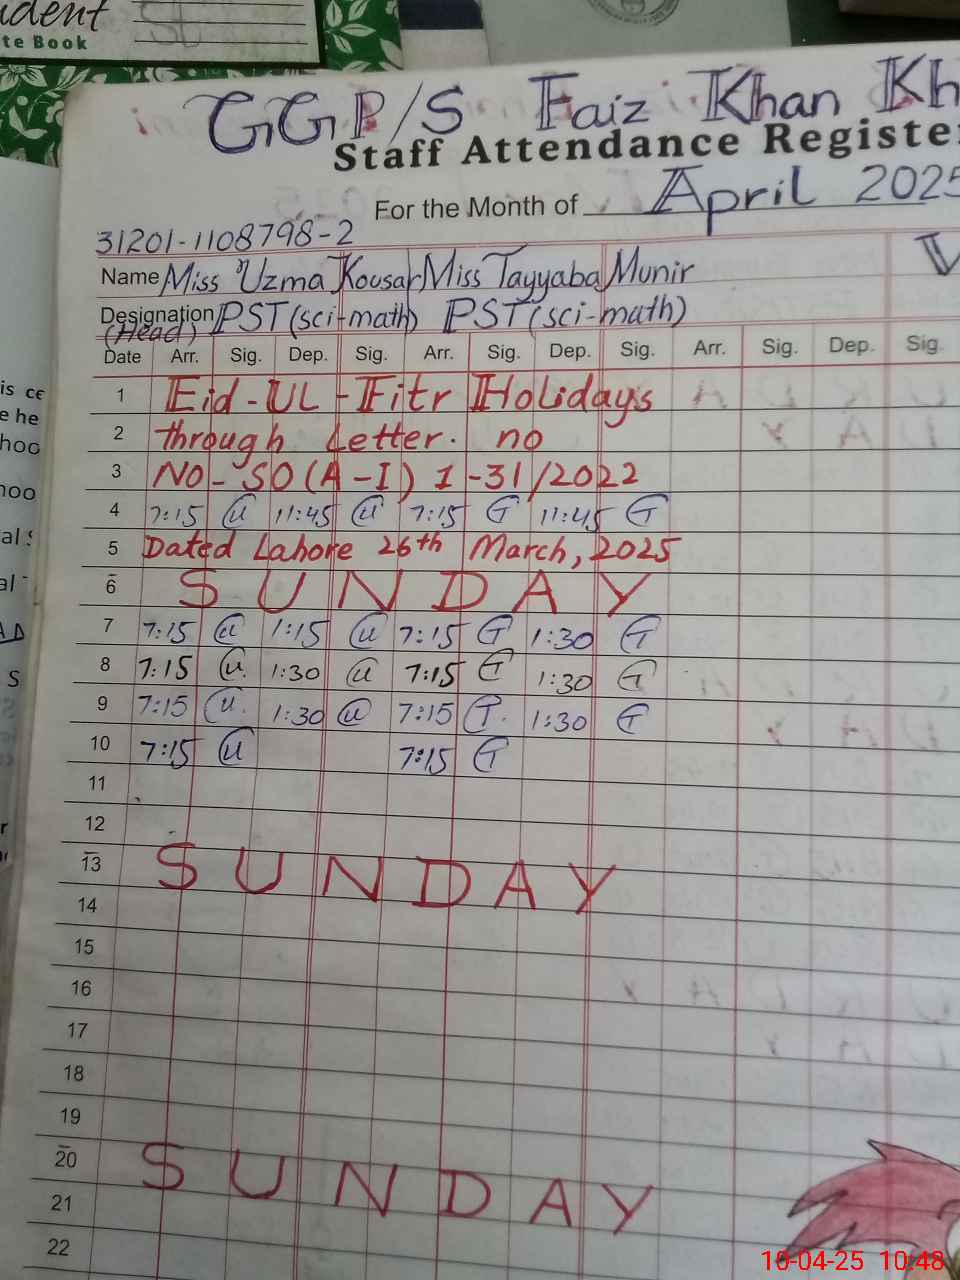 udent
te Book
GGP/S Faiz Khan Kh
Staff Attendance Registe
For the Month of April 2025
31201-1108798-2
Name Miss Uzma Kousar Miss Tayyaba Munir
Designation PST (sci-math) PST (sci-math)
(Head)
Date Arr. Sig. Dep. Sig. Arr. Sig. Dep. Sig. Arr. Sig. Dep. Sig.
1 Eid-UL-Fitr Holidays
2 through Letter. no
3 NO-SO(A-I) 1-31/2022
4 7:15 U 11:45 U 7:15 T 11:45 T
5 Dated Lahore 26th March, 2025
6 SUNDAY
7 7:15 U 1:15 U 7:15 T 1:30 T
8 7:15 U. 1:30 U 7:15 T 1:30 T
9 7:15 U. 1:30 U 7:15 T. 1:30 T
10 7:15 U 7:15 T
11
12
13 SUNDAY
14
15
16
17
18
19
20 SUNDAY
21
22
is ce
e he
hoo
hoo
al S
al
S
10-04-25 10:48